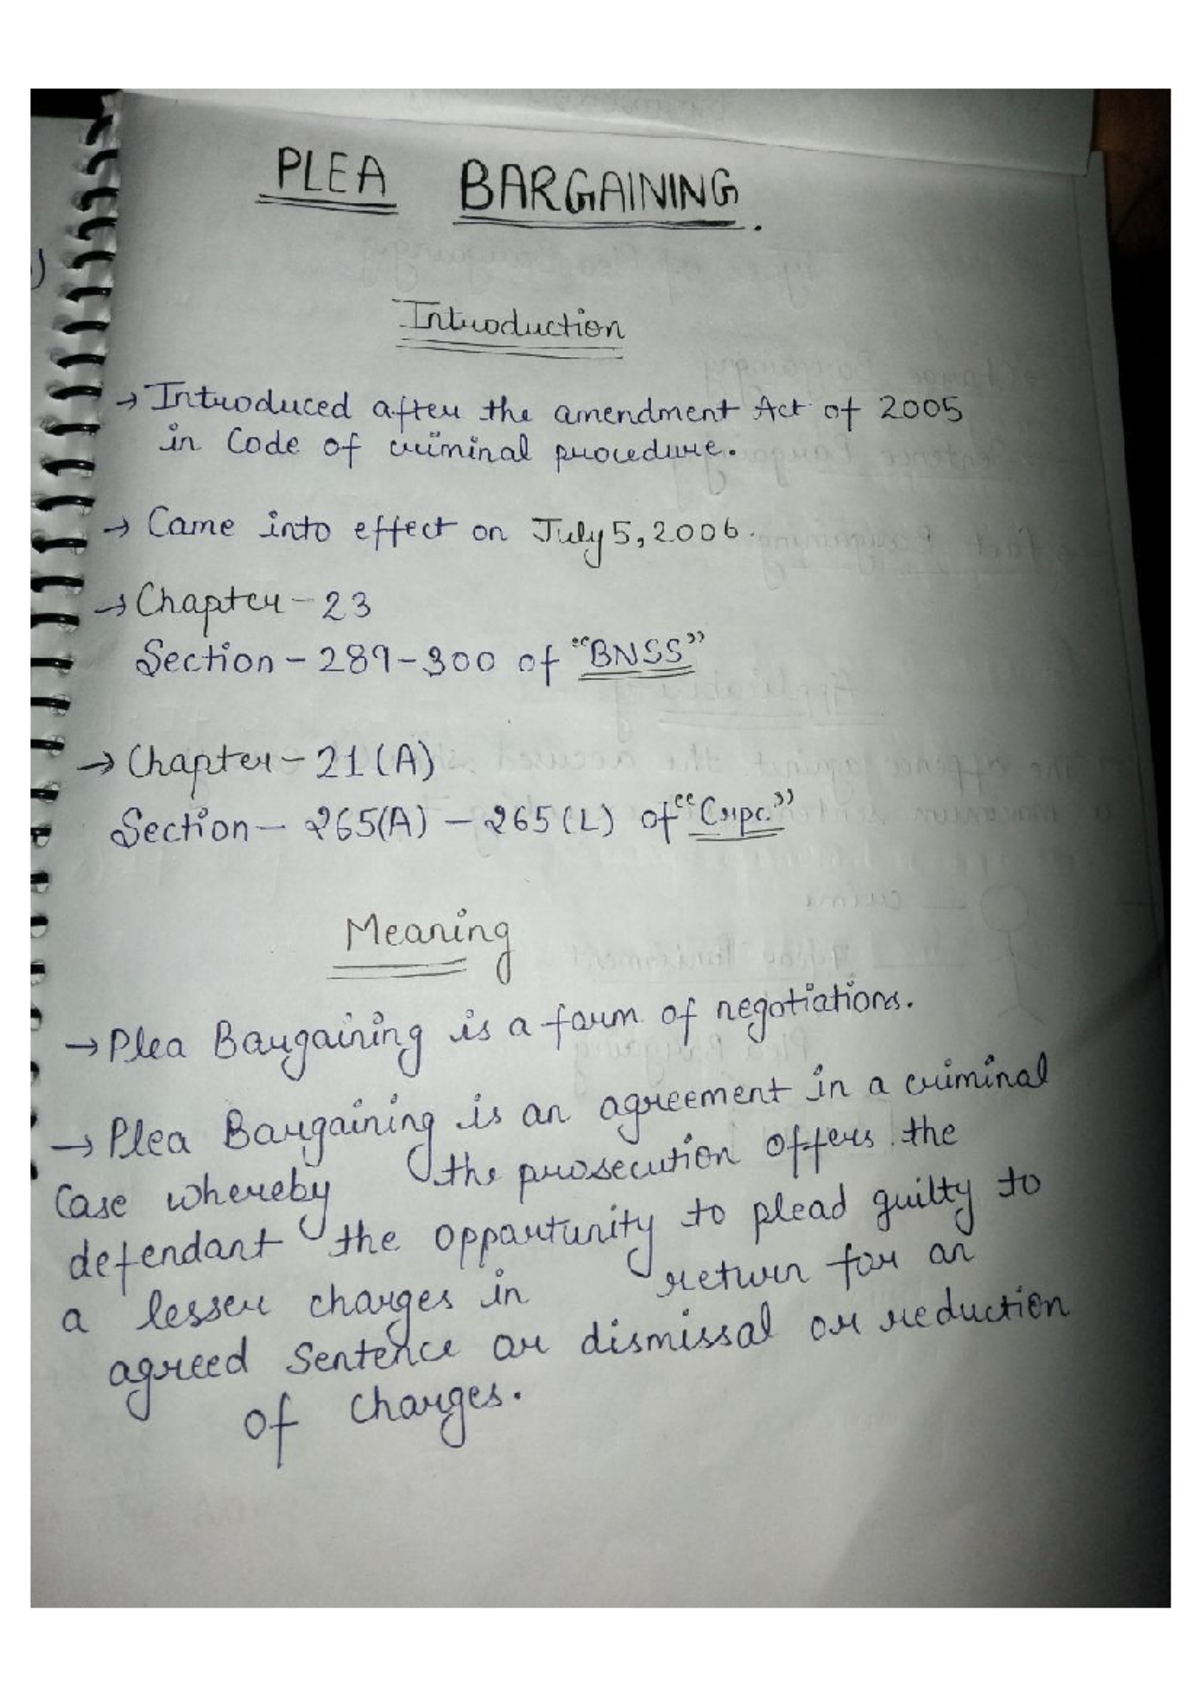 PLEA BARGAINING.
Introduction
→ Introduced after the amendment Act of 2005
in Code of criminal procedure.
→ Came into effect on July 5, 2006.
→ Chapter - 23
Section - 289-300 of "BNSS"
→ Chapter - 21(A)
Section - 265(A) - 265(L) of "Crpc."
Meaning
→ Plea Bargaining is a form of negotiations.
→ Plea Bargaining is an agreement in a criminal
Case whereby the prosecution offers the
defendant the opportunity to plead guilty to
a lesser charges in return for an
agreed Sentence or dismissal or reduction
of charges.